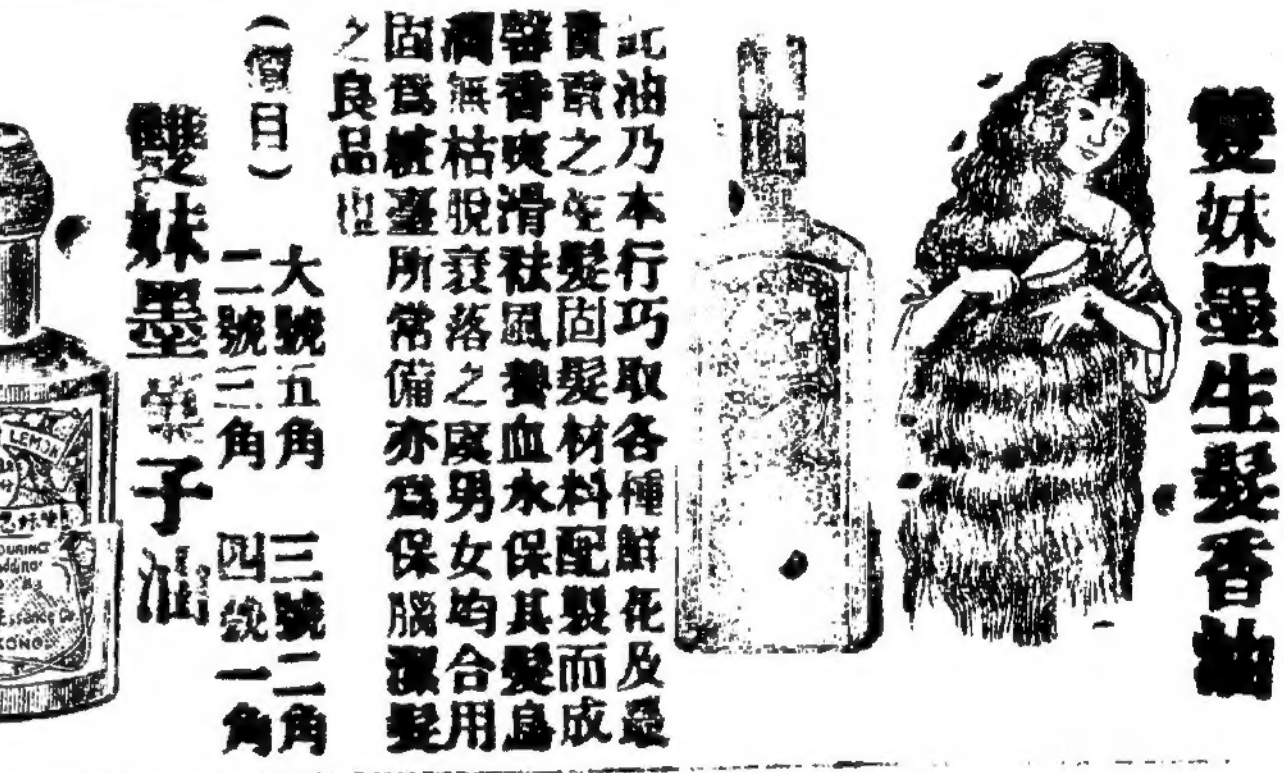 雙妹墨生髮香油
此油乃本行巧取各種鮮花及最
貴重之生髮固髮材料配製而成
馨香爽滑祛風養血水保其髮烏
潤無枯脫衰落之虞男女均合用
固爲粧臺所常備亦爲保腦潔髮
之良品也
(價目)
大號五角 三號二角
二號三角 四號一角
雙妹墨菓子
LEMON
OURING
KONG